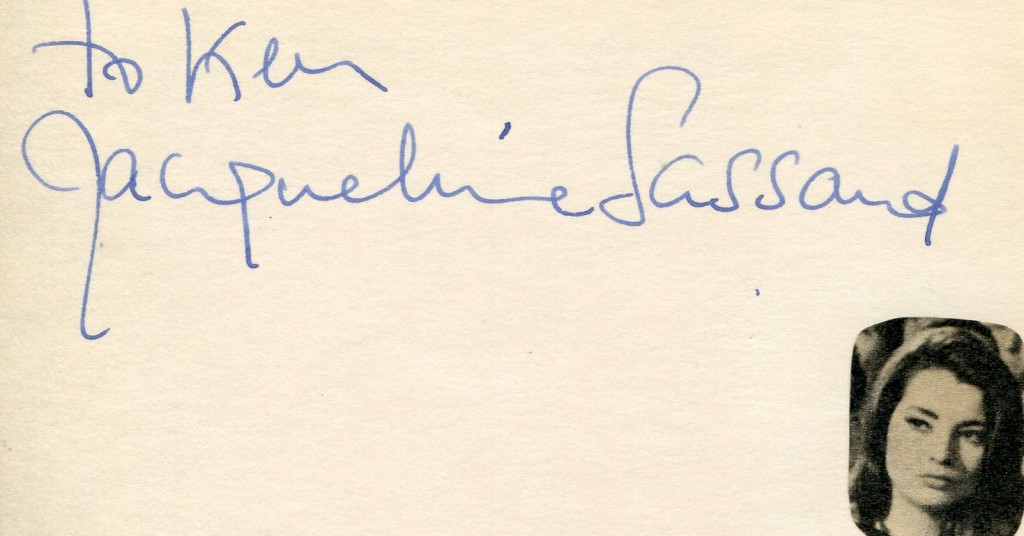 to Ken
Jacqueline Sassard